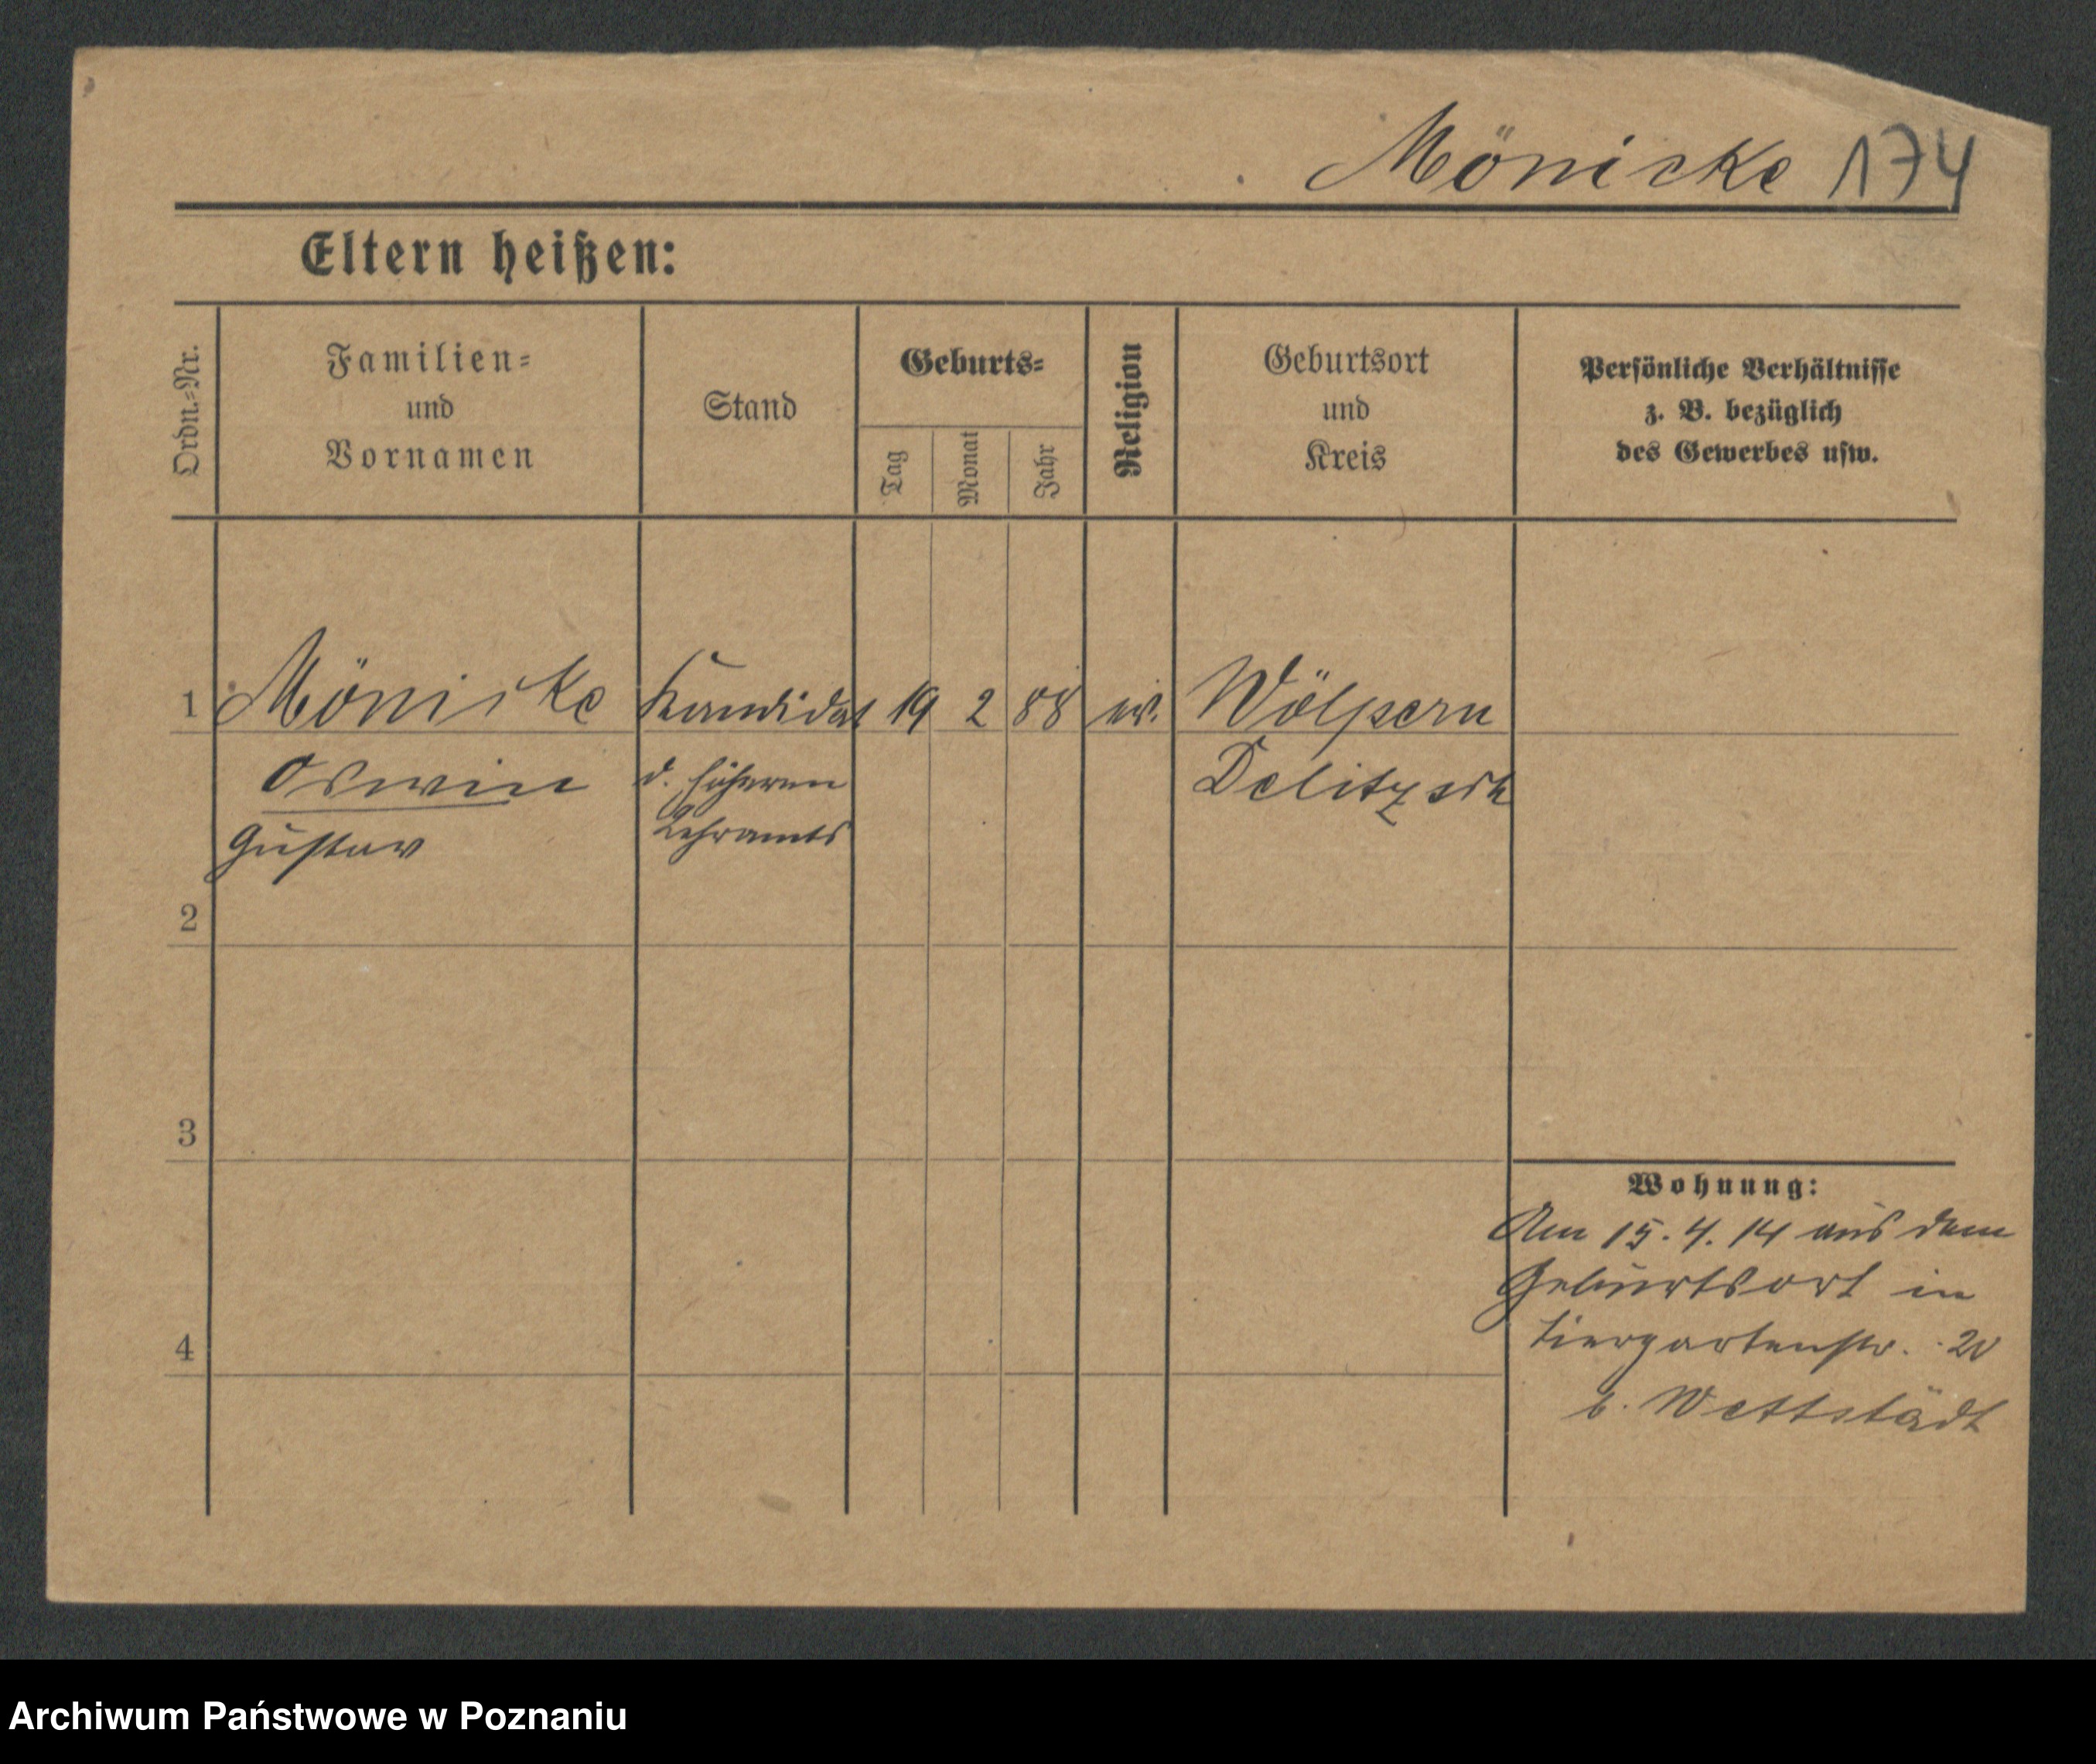 Mönicke 174
Eltern heißen:
Ordn.-Nr.
Familien-
und
Vornamen
Stand
Geburts-
Tag
Monat
Jahr
Religion
Geburtsort
und
Kreis
Persönliche Verhältnisse
z. B. bezüglich
des Gewerbes usw.
1 Mönicke Kandidat 19 2 88 ev. Wölpern
Oswin d. höheren Delitzsch
Gustav Lehramts
2
3
4
Wohnung:
Am 15.4.14 aus dem
Geburtsort in
Tiergartenstr. 20
b. Wettstädt
Archiwum Państwowe w Poznaniu